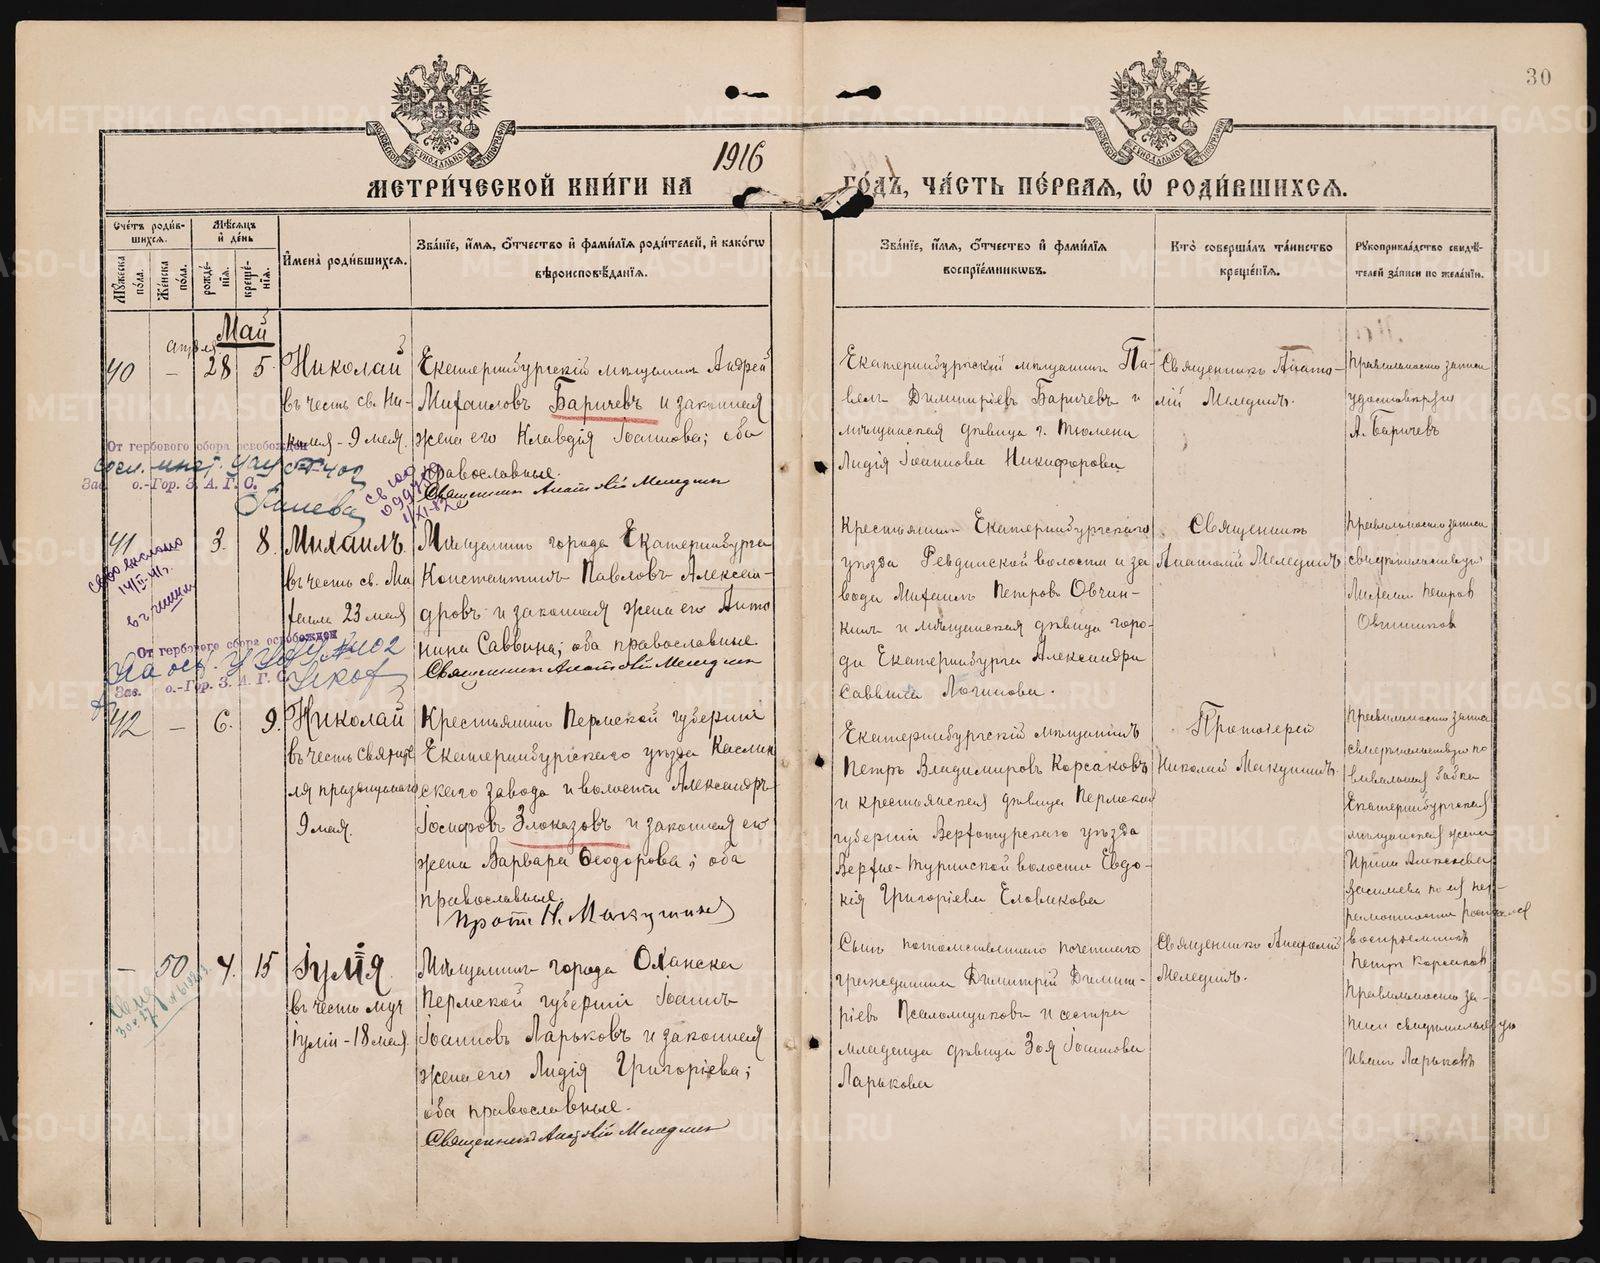 30
МОСКОВСКОЙ СѴНОДАЛЬНОЙ ТИПОГРАФІИ
МОСКОВСКОЙ СѴНОДАЛЬНОЙ ТИПОГРАФІИ
МЕТРИ́ЧЕСКОЙ КНИ́ГИ НА 1916 ГО́ДЪ, ЧА́СТЬ ПЕ́РВАЯ, Ѡ РОДИ́ВШИХСЯ.
Сче́тъ роди́в-
шихся.
Му́жеска по́ла.
Же́нска по́ла.
Мѣ́сяцъ и де́нь
рожде́-
нія.
креще́-
нія.
Имена̀ роди́вшихся.
Зва́ніе, и́мя, о́тчество и фами́лія роди́телей, и како́гѡ
вѣроисповѣ́данія.
Зва́ніе, и́мя, о́тчество и фами́лія
воспріе́мникѡвъ.
Кто̀ соверша́лъ та́инство
креще́нія.
Рукоприкла́дство свидѣ́-
телей за́писи по жела́нію.
Май
апрѣля
40 — 28 5.
Николай
въ честь св. Ни-
колая - 9 мая.
Екатеринбургскій мѣщанинъ Андрей
Михаиловъ Баричевъ и законная
жена его Клавдія Іоаннова; оба
православные.
Священникъ Анатолій Мелединъ
Екатеринбургскій мѣщанинъ Па-
велъ Димитріевъ Баричевъ и
мѣщанская дѣвица г. Тюмени
Лидія Іоаннова Никифорова
Священникъ Анато-
лій Мелединъ.
Правильность записи
удостовѣряю
А. Баричевъ
От гербового сбора освобожден
Зав. о.-Гор. З. А. Г. С.
41 3. 8.
Михаилъ
въ честь св. Ми-
хаила 23 мая
Мѣщанинъ города Екатеринбурга
Константинъ Павловъ Алексан-
дровъ и законная жена его Анто
нина Саввина; оба православные
Священникъ Анатолій Мелединъ
Крестьянинъ Екатеринбургскаго
уѣзда Ревдинской волости и за
вода Михаилъ Петровъ Овчин-
никъ и мѣщанская дѣвица горо-
да Екатеринбурга Александра
Саввина Логинова.
Священникъ
Анатолій Мелединъ
Правильность записи
свидѣтельствую
Михаилъ Петров
Овчинников
От гербового сбора освобожден
Зав. о.-Гор. З. А. Г. С.
42 — 6. 9.
Николай
въ честь святите
ля празднуемаго
9 мая.
Крестьянинъ Пермской губерніи
Екатеринбургскаго уѣзда Каслин
скаго завода и волости Александръ
Іосифовъ Злоказовъ и законная его
жена Варвара Ѳеодорова; оба
православные.
Прот. Н. Макушинъ
Екатеринбургскій мѣщанинъ
Петръ Владимировъ Корсаковъ
и крестьянская дѣвица Пермской
губерніи Верхотурскаго уѣзда
Верхне-Туринской волости Евдо-
кія Григоріева Еловикова
Протоіерей
Николай Макушинъ.
Правильность записи
свидѣтельствую по
вивальная бабка
Екатеринбургская
мѣщанская жена
Ирина Алексѣева
по ея нег-
рамотности
воспріемникъ
Петръ Корсаков
— 50 4. 15
Іулія
въ честь муч
Іуліи - 18 мая
Мѣщанинъ города Оханска
Пермской губерніи Іоаннъ
Іоанновъ Ларьковъ и законная
жена его Лидія Григоріева;
оба православные.
Священникъ Анатолій Мелединъ
Сынъ потомственнаго почетнаго
гражданина Димитрій Димит-
ріевъ Псаломщиковъ и сестра
младенца дѣвица Зоя Іоаннова
Ларькова
Священникъ Анатолій
Мелединъ.
Правильность за-
писи свидѣтельствую
Иванъ Ларьковъ
METRIKI.GASO-URAL.RU